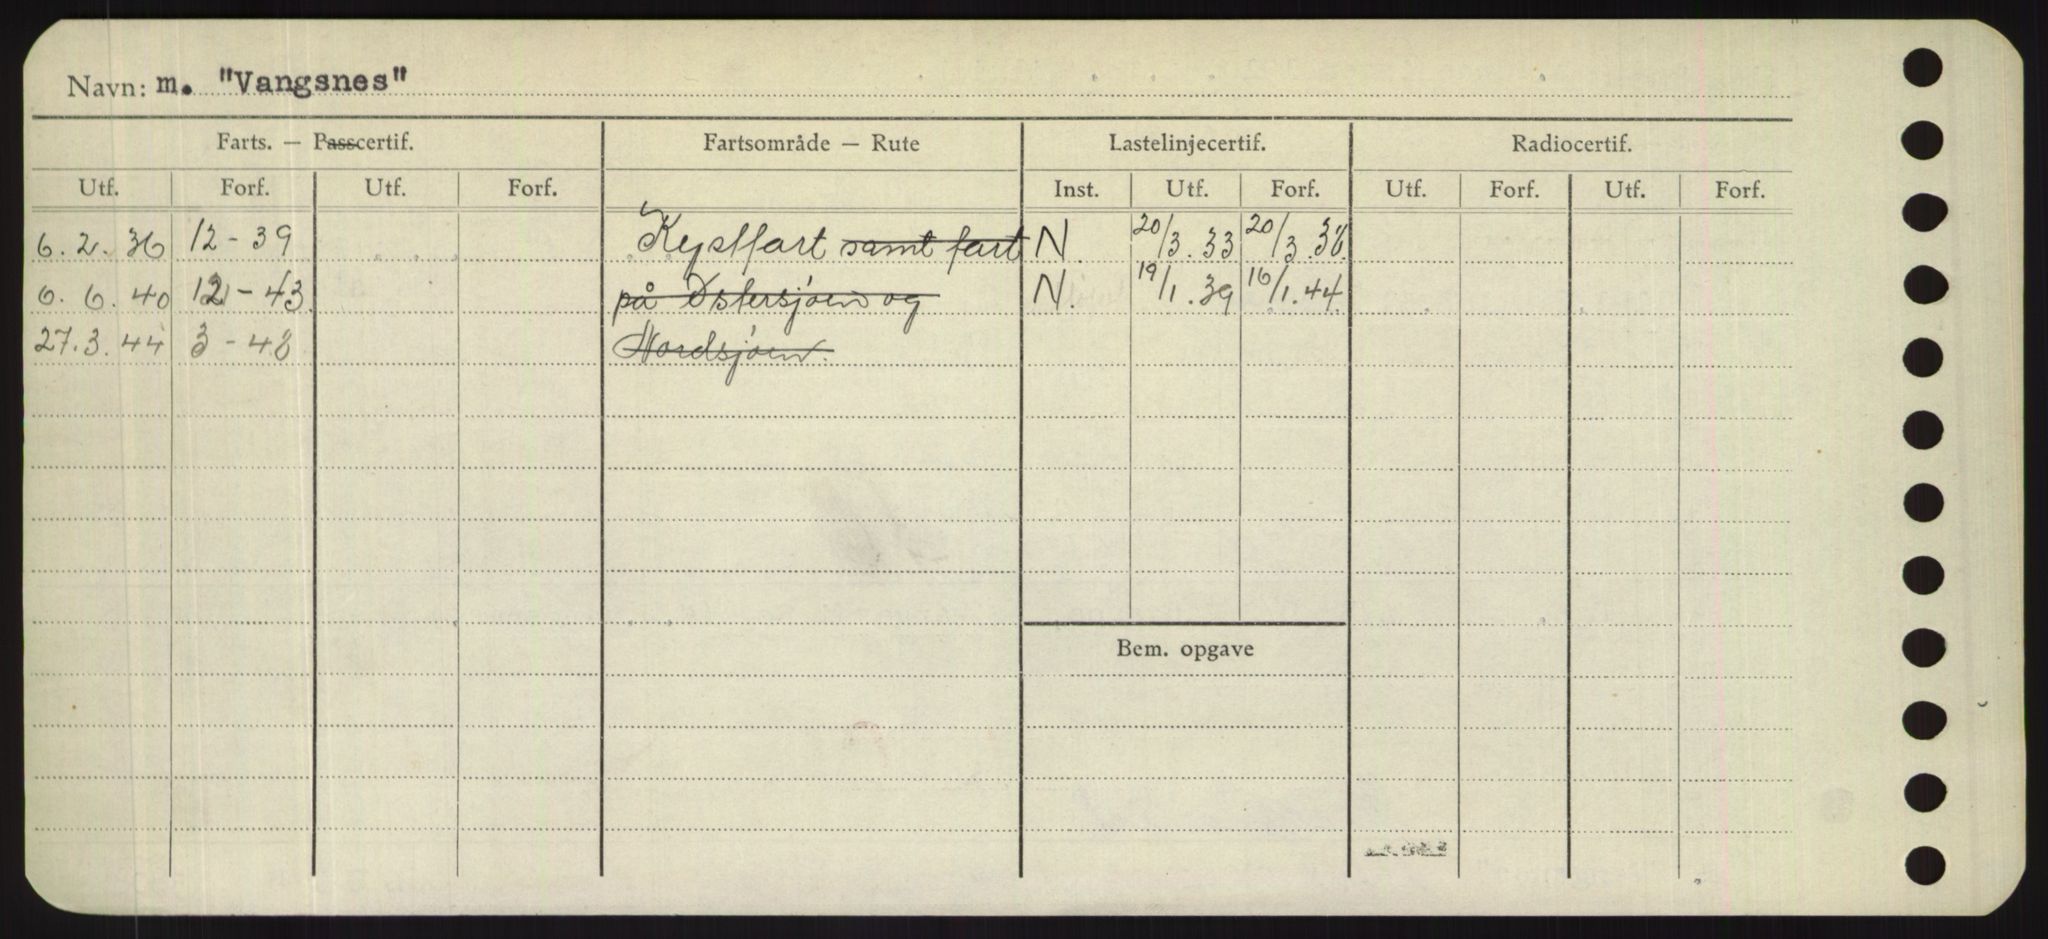 Navn: m. "Vangsnes"
Farts. — Passcertif. Fartsområde — Rute Lastelinjecertif. Radiocertif.
Utf. Forf. Utf. Forf. Inst. Utf. Forf. Utf. Forf. Utf. Forf.
6.2.36 12-39 Kystfart samt fart N. 20/3.33 20/3.38.
6.6.40 12-43 på Østersjøen og N. 19/1.39 16/1.44.
27.3.44 3-48 Nordsjøen.
Bem. opgave